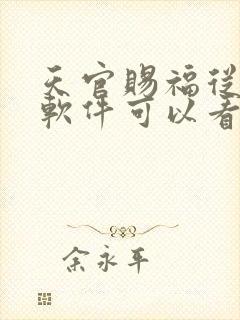 天官賜福從
軟件可以看
余永平